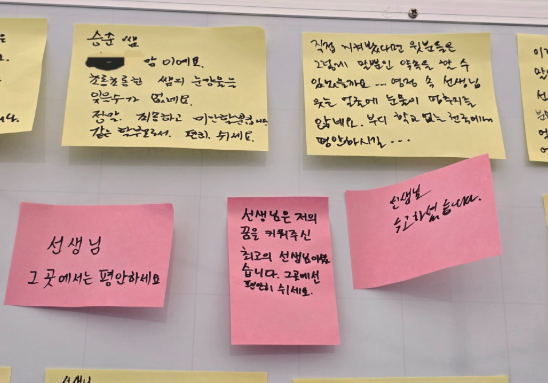 승준 쌤
맘이예요.
초롱초롱한 쌤의 눈망울을
잊을수가 없네요.
정말 죄송하고 미안할뿐입니다.
같은 학부모로서. 편히 쉬세요.
직접 지켜봤다면 윗분들은
그렇게 말뿐인 약속을 할 수
있었을까요.... 영정 속 선생님
웃는 얼굴에 눈물이 멈춰지질
않네요. 부디 학교 없는 천국에서
평안하시길...
선생님
그 곳에서는 평안하세요
선생님은 저의
꿈을 키워주신
최고의 선생님이셨
습니다. 그곳에선
편안히 쉬세요.
선생님
수고하셨습니다.
선생님